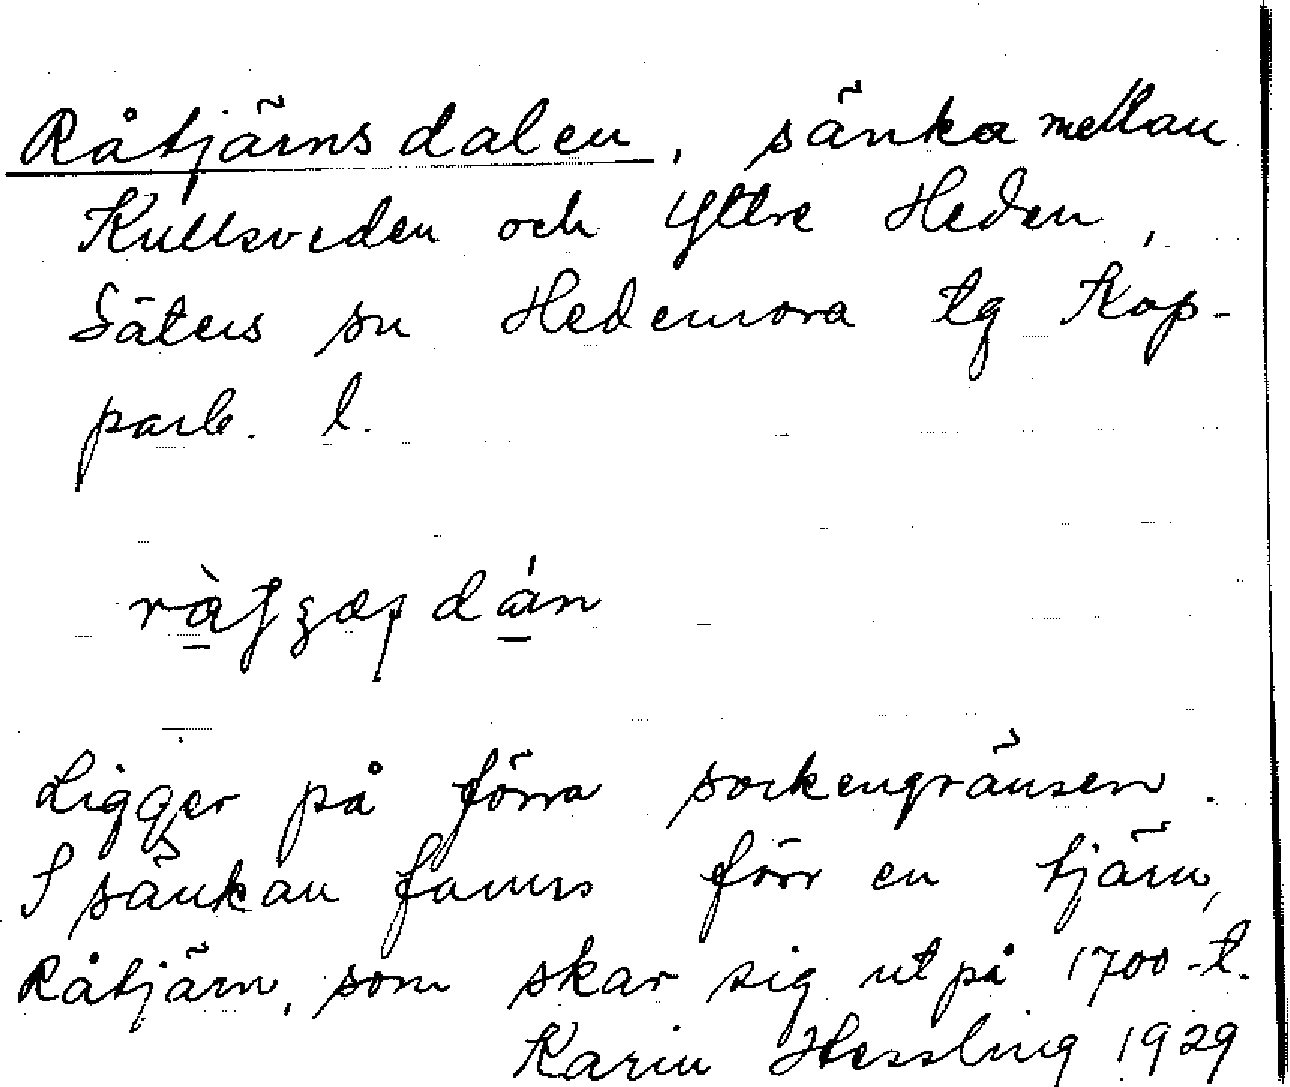 Råtjärnsdalen, sänka mellan
Kullsveden och Yttre Heden,
Säters sn Hedemora tg Kop-
parb. l.
Ligger på förra sockengränsen.
I sänkan fanns förr en tjärn,
Råtjärn, som skar sig ut på 1700-t.
Karin Hessling 1929